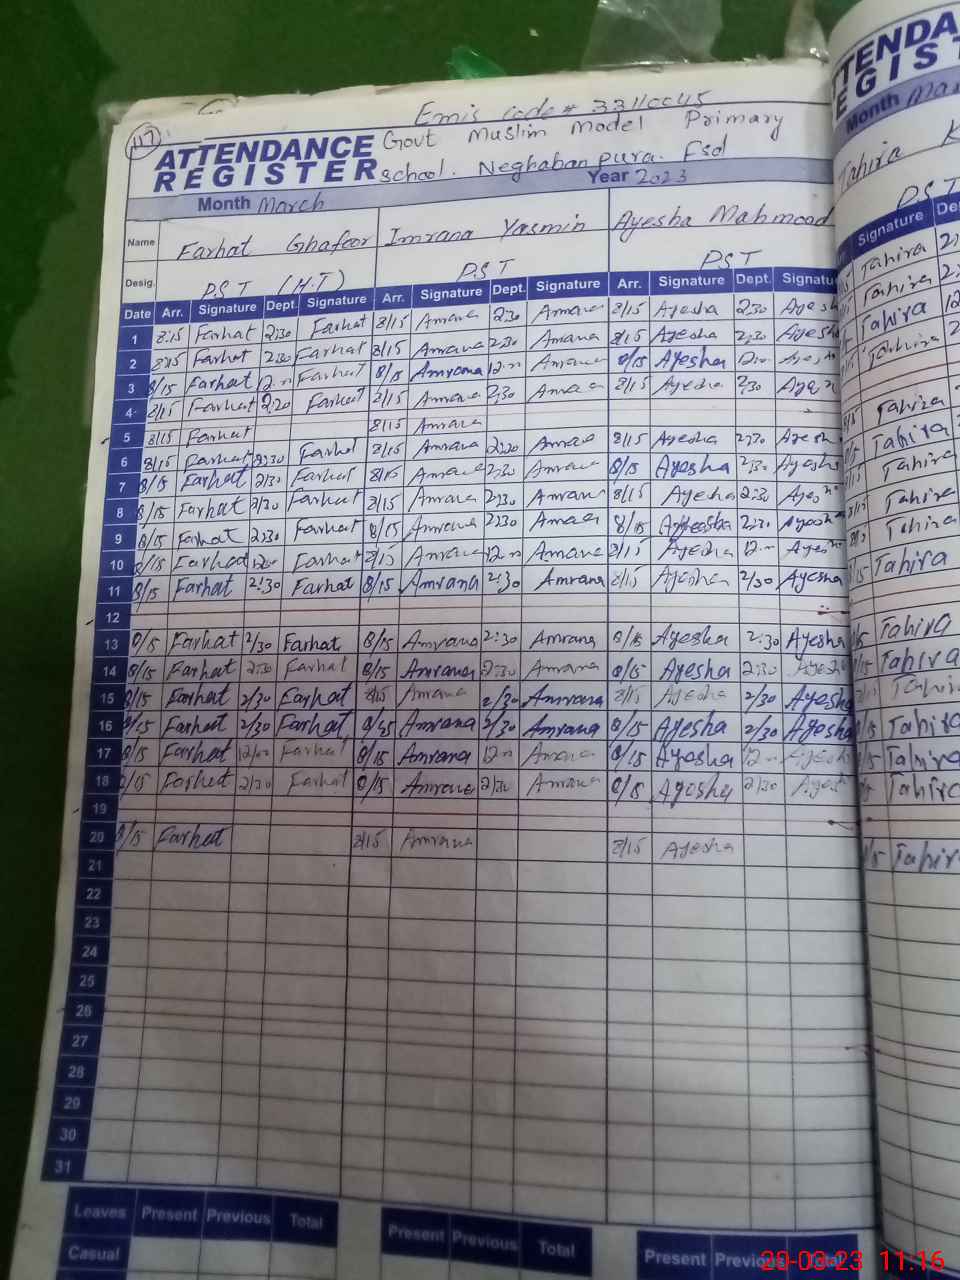 117
Emis code # 33110045
ATTENDANCE REGISTER
Govt Muslim Model Primary
School. Neghaban pura. Fsd
Month March Year 2023
Name Farhat Ghafoor Imrana Yasmin Ayesha Mahmood
Desig. P.S.T (H.T) P.S.T PST
Date Arr. Signature Dept. Signature Arr. Signature Dept. Signature Arr. Signature Dept. Signatu
1 8:15 Farhat 2:30 Farhat 8/15 Amrana 2:30 Amana 8/15 Ayesha 2:30 Ayesh
2 8:15 Farhat 2:30 Farhat 8/15 Amrana 2:30 Amana 8/15 Ayesha 2:30 Ayesh
3 8/15 Farhat Farhat 8/15 Amrana Amana 8/15 Ayesha
4 8/15 Farhat Farhat 8/15 Amrana 2:30 8/15 Ayesha 2:30
5 8/15 Farhat 8/15 Amrana
6 8/15 Farhat 2:30 Farhat 8/15 Amrana Amana 8/15 Ayesha 2:30 Ayesh
7 8/15 Farhat 2/30 Farhat 8/15 Amrana 2:30 Amrana 8/15 Ayesha 2:30 Ayesha
8 8/15 Farhat 2/30 Farhat 8/15 Amrana 2:30 Amrana 8/15 Ayesha 2:30
9 8/15 Farhat 2:30 Farhat 8/15 Amrana 2:30 Amana 8/15 Ayeesha 2:30 Ayesh
10 8/15 Farhat Farhat 8/15 Amrana Amana 8/15 Ayesha Ayesh
11 8/15 Farhat 2:30 Farhat 8/15 Amrana 2:30 Amrana 8/15 Ayesha 2/30 Ayesha
12
13 8/15 Farhat 2/30 Farhat 8/15 Amrana 2:30 Amrana 8/15 Ayesha 2:30 Ayesha
14 8/15 Farhat 2:30 Farhat 8/15 Amrana 2:30 Amrana 8/15 Ayesha 2:30 Ayesha
15 8/15 Farhat 2/30 Farhat 8/15 Amrana 2/30 Amrana 8/15 Ayesha 2/30 Ayesha
16 8/15 Farhat 2/30 Farhat 8/15 Amrana 2/30 Amrana 8/15 Ayesha 2/30 Ayesha
17 8/15 Farhat 12/00 Farhat 8/15 Amrana Amana 8/15 Ayesha Ayesha
18 8/15 Farhat 2/30 Farhat 8/15 Amrana 2/30 Amana 8/15 Ayesha 2/30 Ayesh
19
20 8/15 Farhat 8/15 Amrana 8/15 Ayesha
21
22
23
24
25
26
27
28
29
30
31
Leaves Present Previous Total Present Previous Total Present Previous Total
Casual
TTENDA
EGIST
Month Mar
Tahira K
PST
Signature De
Tahira
Tahira
Tahira
Tahira
Tahira
Tahira
Tahira
Tahira
Tahira
Tahira
Tahira
Tahira
Tahira
Tahira
Tahira
Tahira
Tahira
20-03-23 11:16